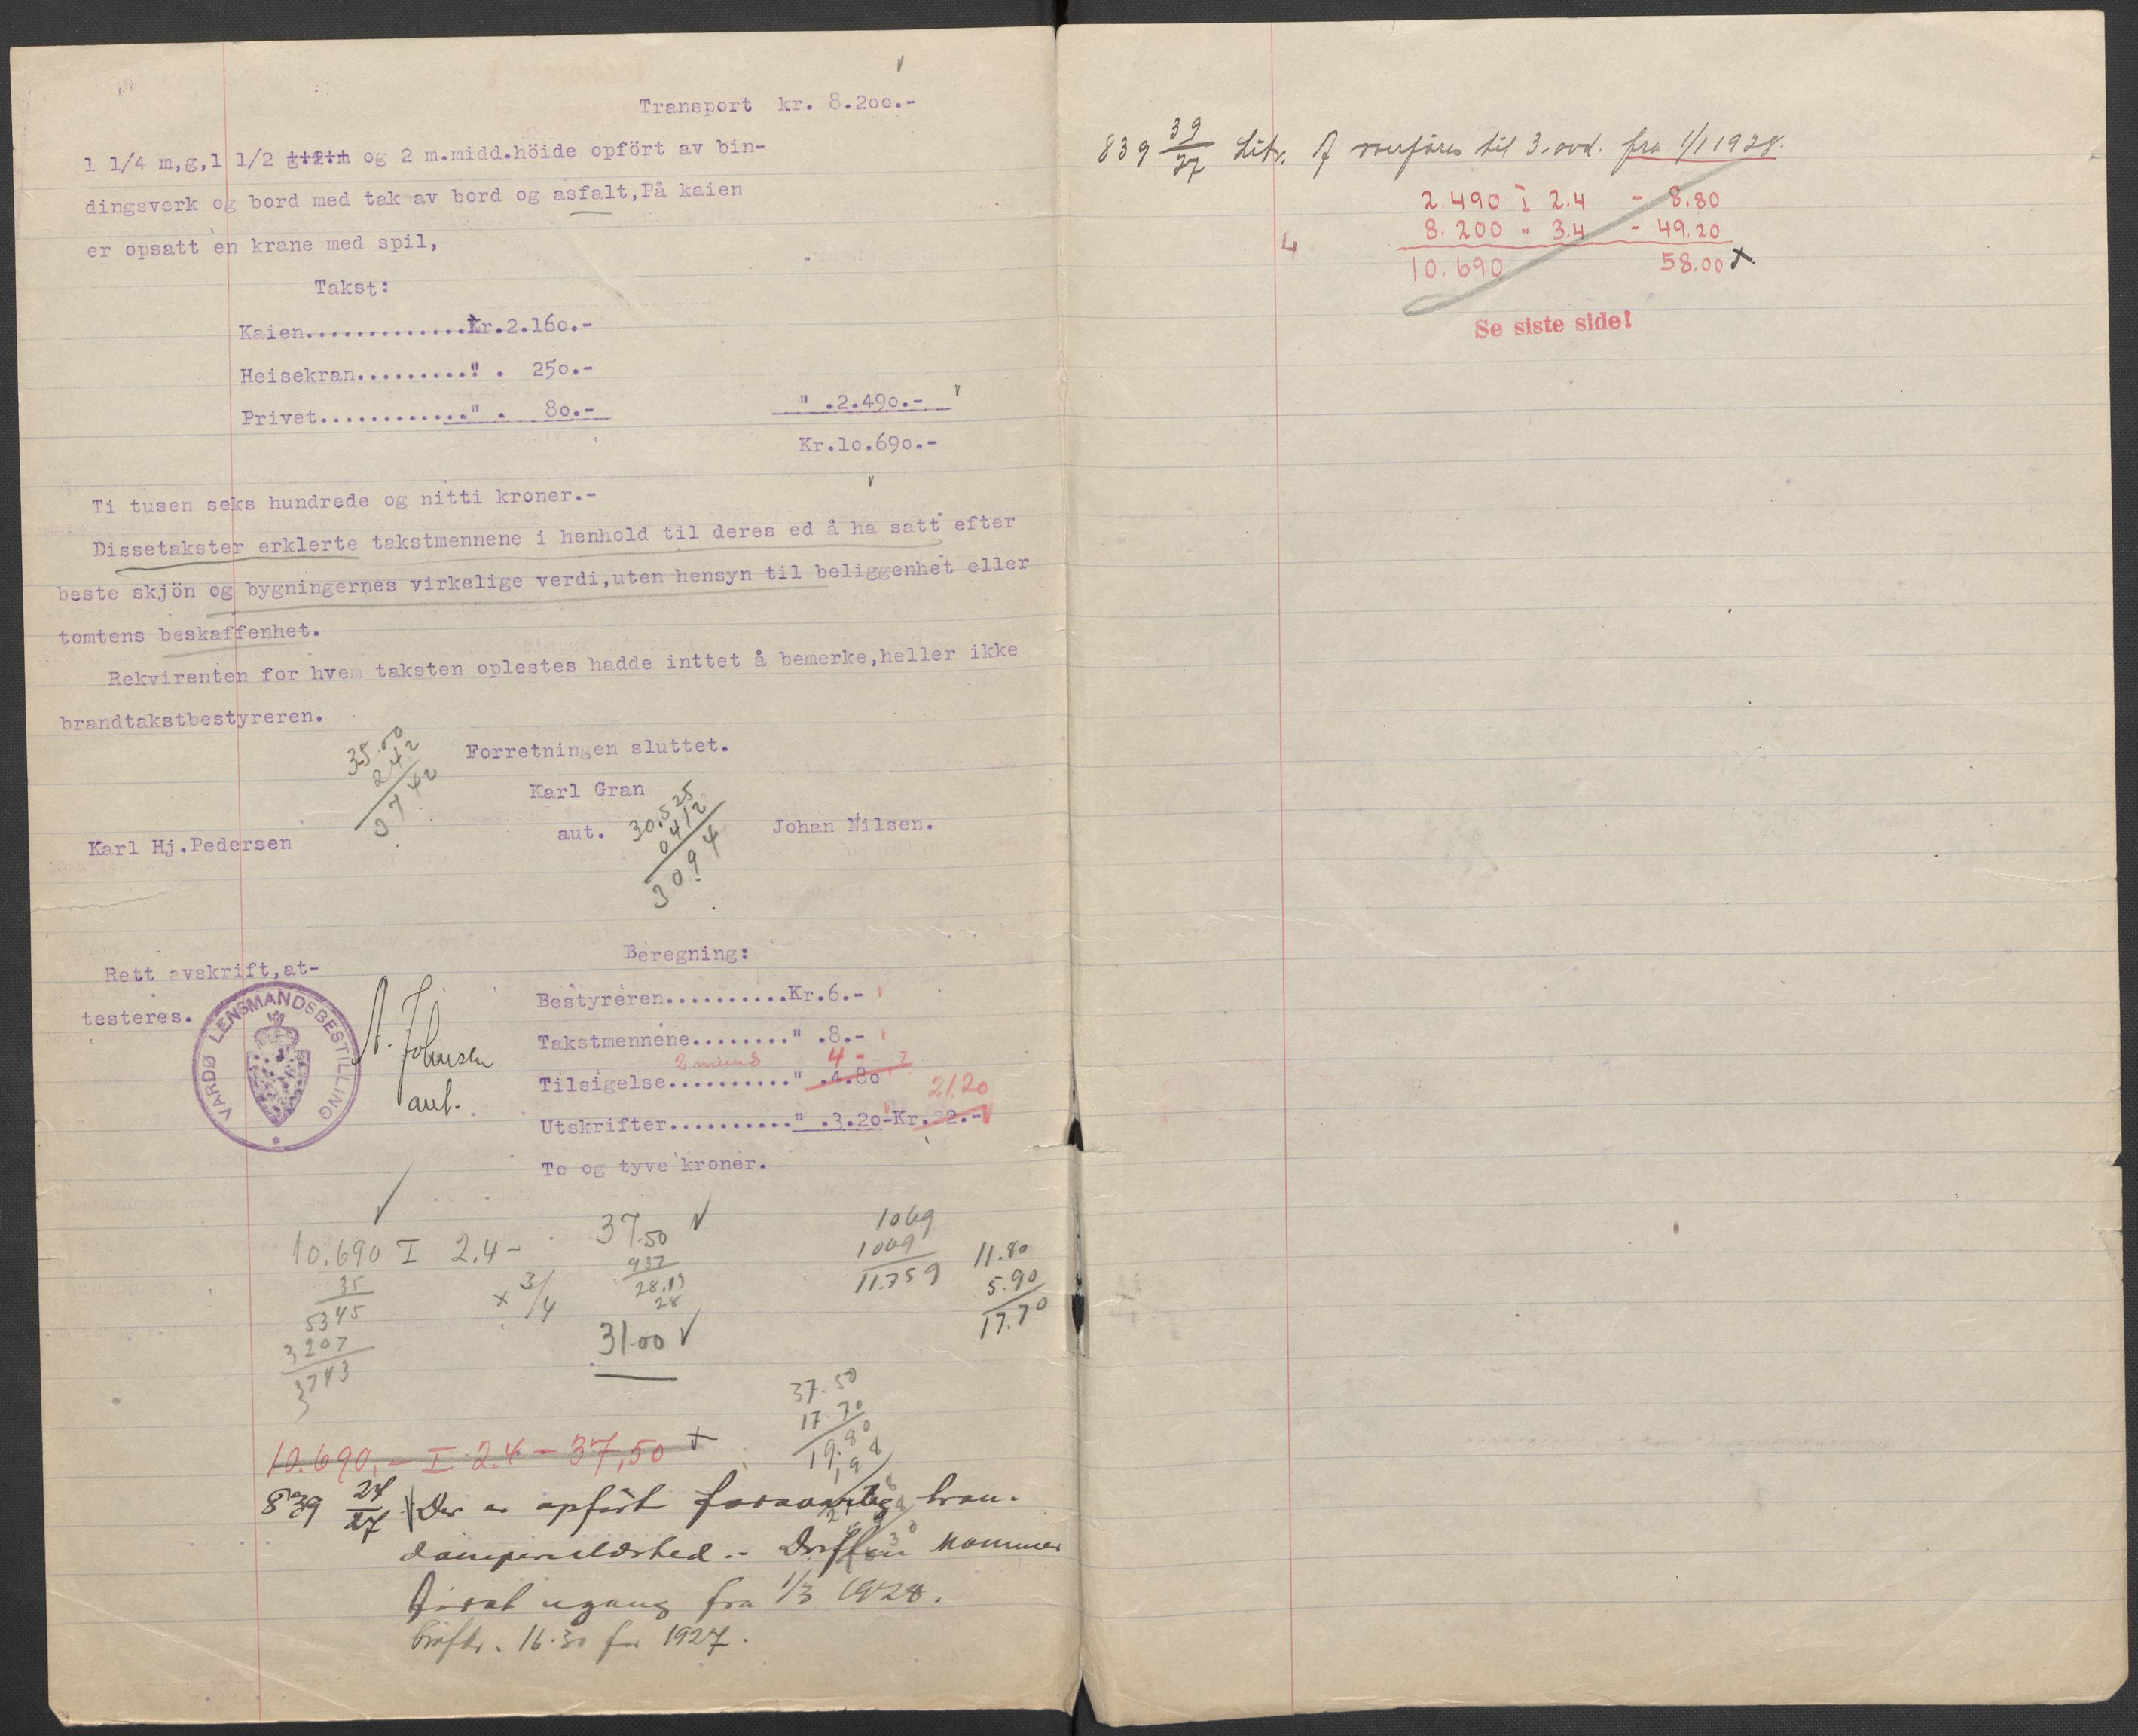 Transport kr. 8.200.-
1 1/4 m,g,1 1/2 og 2 m.midd.höide opfört av bin-
dingsverk og bord med tak av bord og asfalt,På kaien
er opsatt en krane med spil,
Takst:
Kaien.............Kr.2.160.-
Heisekran.........". 250.-
Privet............". 80.- " .2.490.-
Kr.10.690.-
Ti tusen seks hundrede og nitti kroner.-
Dissetakster erklerte takstmennene i henhold til deres ed å ha satt efter
beste skjön og bygningernes virkelige verdi,uten hensyn til beliggenhet eller
tomtens beskaffenhet.
Rekvirenten for hvem taksten oplestes hadde inttet å bemerke,heller ikke
brandtakstbestyreren.
35.00
242
3742
Forretningen sluttet.
Karl Gran
aut.
30.525
0412
3094
Karl Hj.Pedersen
Johan Nilsen.
Rett avskrift,at-
testeres.
VARDØ LENSMANDSBESTILLING
A. Johnsen
aut.
Beregning:
Bestyreren..........Kr.6.-
Takstmennene........" .8.-
4 -
Tilsigelse.........." .4.80
21.20
Utskrifter.........." .3.20-Kr.22.-
To og tyve kroner.
10.690 I 2.4 -
35
5345
3207
3743
x 3/4
37.50
937
28.13
28
31.00
1069
1069
11.759
11.80
5.90
17.70
37.50
17.70
19.80
198
10.690.- I 2.4 - 37,50 +
839 24/27 Der er opfört tran-
Driften kommer
igang fra 1/3 1928.
16.30 for 1927.
839 39/27 Litr. til 3. avd. fra 1/1 1928.
2.490 I 2.4 - 8.80
8.200 " 3.4 - 49.20
4
10.690 58.00 x
Se siste side!